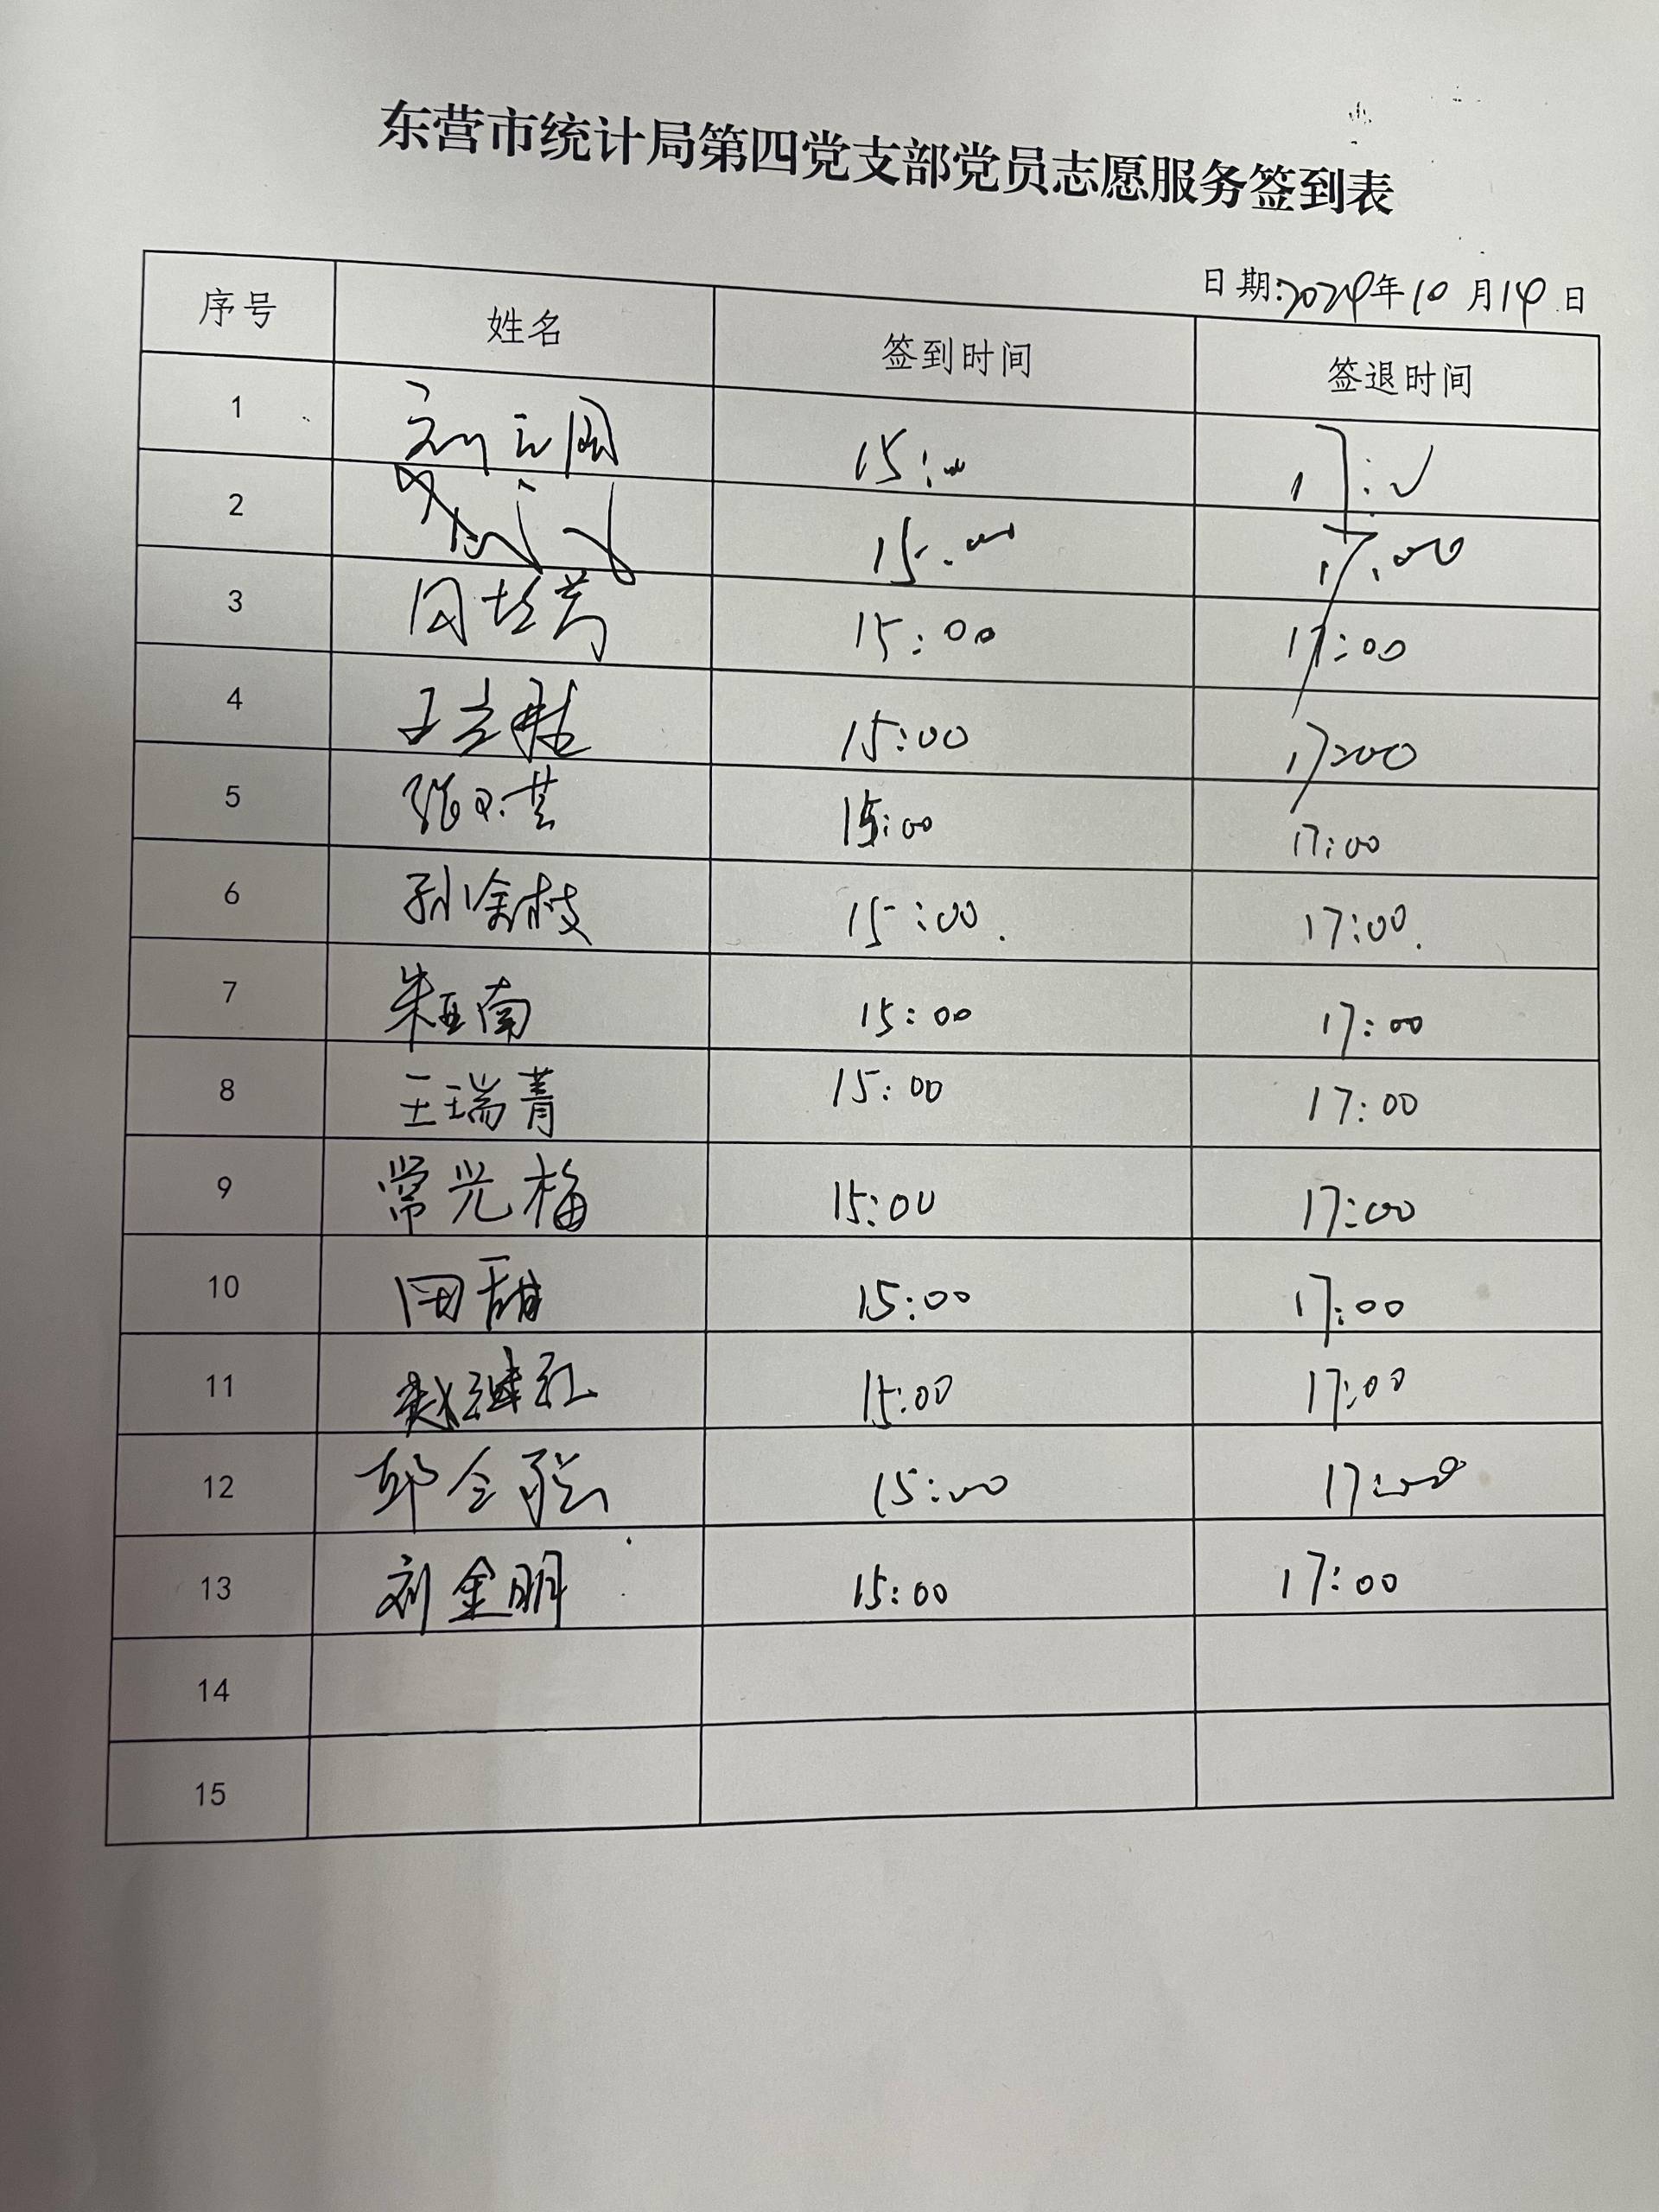 东营市统计局第四党支部党员志愿服务签到表
日期:2024年10月14日
序号 姓名 签到时间 签退时间
1 15:00 17:00
2 15:00 17:00
3 15:00 17:00
4 15:00 17:00
5 15:00 17:00
6 孙金枝 15:00. 17:00.
7 朱亚南 15:00 17:00
8 王瑞菁 15:00 17:00
9 常光梅 15:00 17:00
10 田甜 15:00 17:00
11 赵继红 15:00 17:00
12 15:00 17:00
13 刘金明 15:00 17:00
14
15